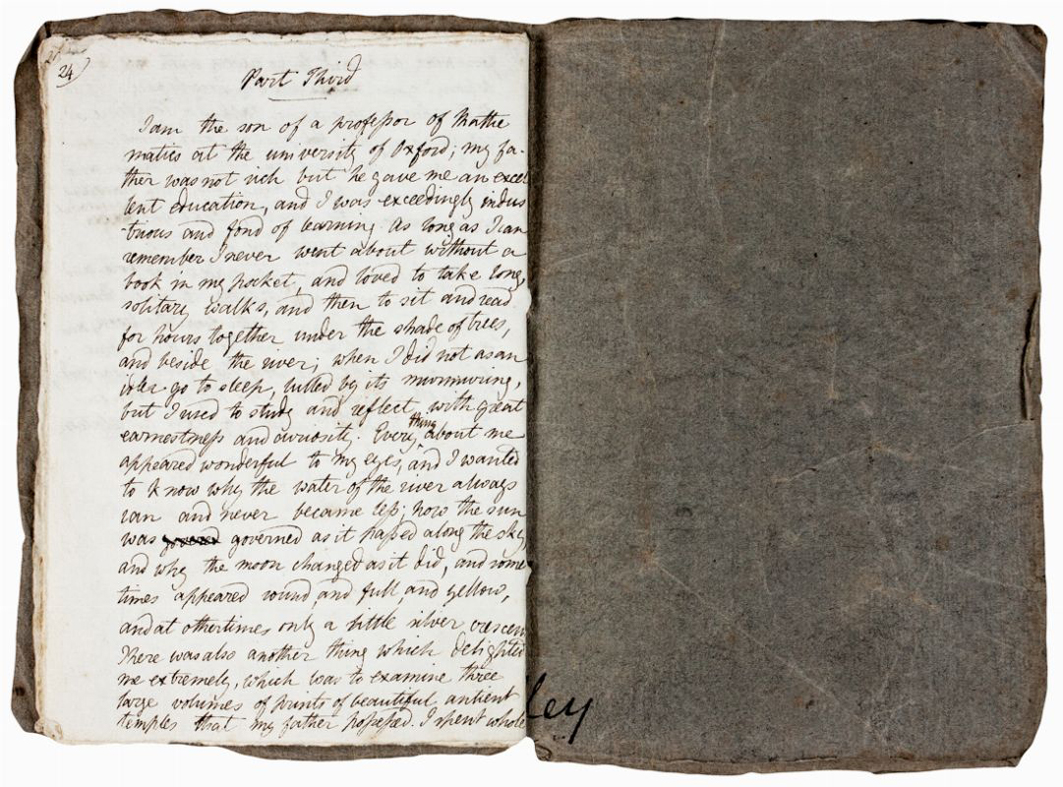 24)
Part Third
I am the son of a professor of Mathe
matics at the university of Oxford; my fa-
ther was not rich but he gave me an excel
lent education, and I was exceedingly indus
trious and fond of learning. As long as I can
remember I never went about without a
book in my pocket, and loved to take long,
solitary walks, and then to sit and read
for hours together under the shade of trees,
and beside the river; when I did not as an
idler go to sleep, lulled by its murmuring,
but I used to study and reflect with great
earnestness and curiosity. Every thing about me
appeared wonderful to my eyes, and I wanted
to know why the water of the river always
ran and never became less; how the sun
was governed as it passed along the sky
and why the moon changed as it did, and some
times appeared round, and full, and yellow,
and at other times only a little silver crescen
There was also another thing which delighted
me extremely, which was to examine three
large volumes of prints of beautiful antient
temples that my father possessed. I spent whole
ley